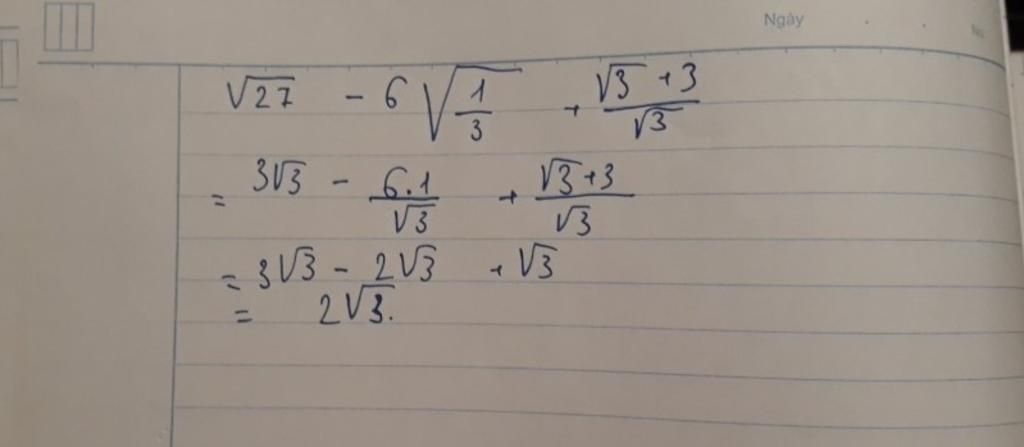 Ngày
√27 - 6 √(1/3) + (√3 + 3)/√3
= 3√3 - (6.1)/√3 + (√3+3)/√3
= 3√3 - 2√3 + √3
= 2√3.